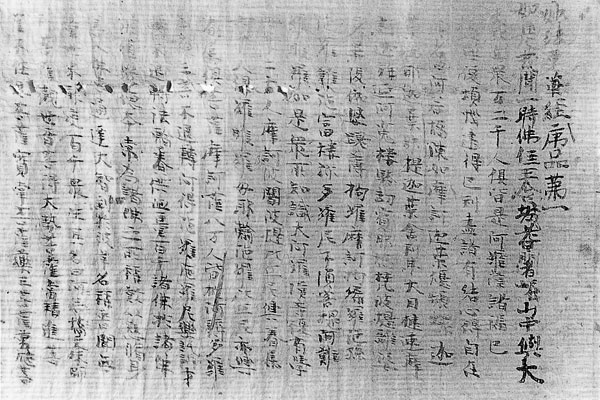 華經序品第一
如是我聞一時佛住王舍城耆闍崛山中與大
比丘眾万二千人俱皆是阿羅漢諸漏已
復煩惱逮得己利盡諸有結心得自在
曰阿若憍陳如摩訶迦葉優樓頻螺迦
耶迦葉那提迦葉舍利弗大目揵連摩
訶迦旃延阿樓馱劫賓那憍梵波提離婆
多畢陵伽婆蹉薄拘羅摩訶拘絺羅難陀孫
難陀富樓那彌多羅尼子須菩提阿難
羅如是眾所知識大阿羅漢等復有學
二千人摩訶波闍波提比丘尼與眷屬
人俱羅睺羅母耶輸陀羅比丘尼亦與
眷屬俱菩薩摩訶薩八万人皆於阿耨多羅
三三不退轉皆得陀羅尼樂說辯才
不退轉法輪供養無量百千諸佛於諸佛
德本常為諸佛之所稱歎以慈修身
善入佛慧通達大智到於彼岸名稱普聞无
量世界能度無數百千眾生其名曰文殊師利
觀世音菩薩得大勢菩薩常精進菩
不休息菩薩寶掌菩薩藥王菩薩勇施菩